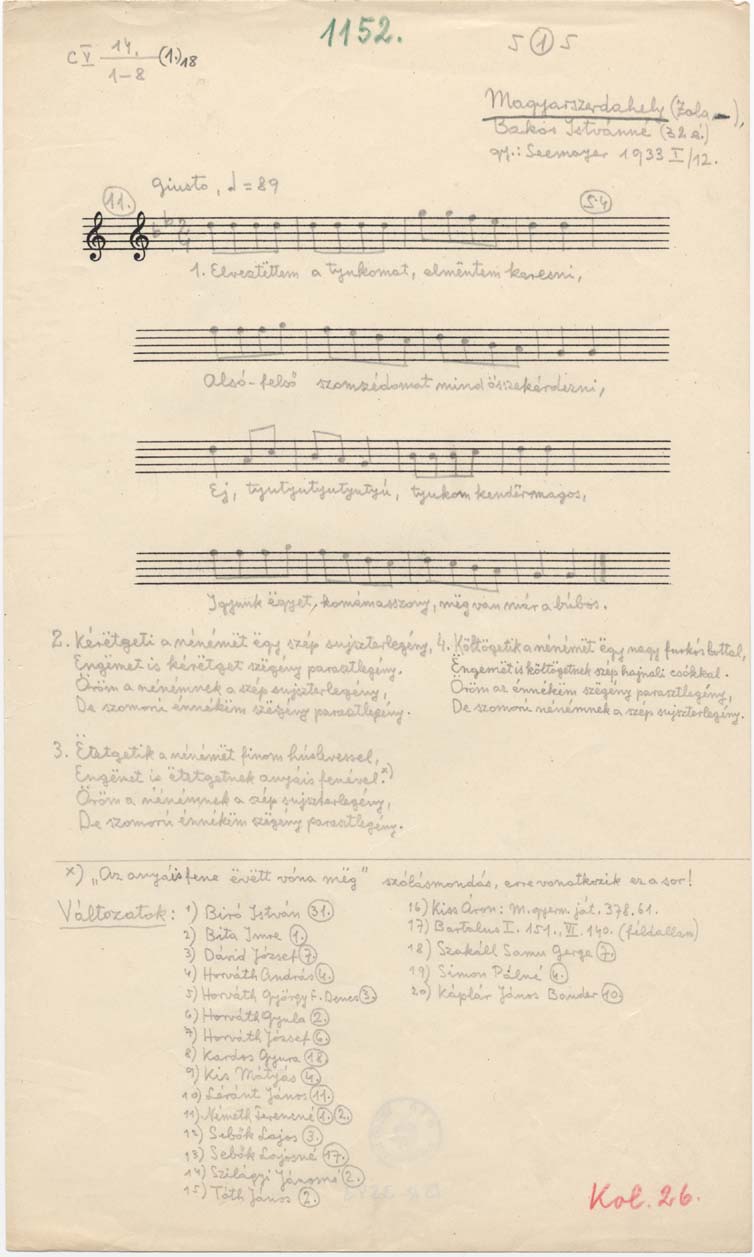 1152.
C V 14. (1.) 18
1–8
5 (1) 5
Magyarszerdahely (Zala),
Bakos Istvánné (32 é.)
gy.: Seemayer 1933 I/12.
Giusto, ♩ = 89
11.
5 4
1. Elvesztëttem a tyukomat, elmëntem keresni,
Alsó-felső szomszédomat mind összekérdezni,
Ej, tyutyutyutyutyú, tyukom kendërmagos,
Igyunk ëgyet, komámasszony, mëgvan már a búbos.
2. Kérëtgeti a nénémët ëgy szép sujszterlegény,
Engëmet is kérëtget szëgény parasztlegény.
Öröm a nénémnek a szép sujszterlegény,
De szomorú énnékëm szëgény parasztlegény.
4. Költögetik a nénémët ëgy nagy furkósbottal,
Ëngemët is költögetnek szép hajnali csókkal.
Öröm az énnékem szëgény parasztlegény,
De szomorú nénémnek a szép sujszterlegény.
3. Ëtetgetik a nénémët finom húslevessel,
Engëmet is ëtetgetnek anyáis fenével. x)
Öröm a nénémnek a szép sujszterlegény,
De szomorú énnékëm szëgény parasztlegény.
x) „Az anyáis fene ëvëtt vóna mëg" szólásmondás, erre vonatkozik ez a sor!
Változatok: 1) Biró István (31.)
2) Bita Imre (1.)
3) Dávid József (7.)
4) Horváth András (4.)
5) Horváth György F. Dencs (3.)
6) Horváth Gyula (2.)
7) Horváth József (6.)
8) Kardos Gyura (18)
9) Kis Mátyás (4.)
10) Léránt János (11.)
11) Németh Ferencné (1.) (2.)
12) Sebők Lajos (3.)
13) Sebők Lajosné (17.)
14) Szilágyi Jánosné (2.)
15) Tóth János (2.)
16) Kiss Áron: M. gyerm. ját. 378.61.
17) Bartalus I. 151., VI. 140. (féldallam)
18) Szakáll Samu Gerge (7.)
19) Simon Pálné (4.)
20) Káplár János Bander (10.)
Kol. 26.